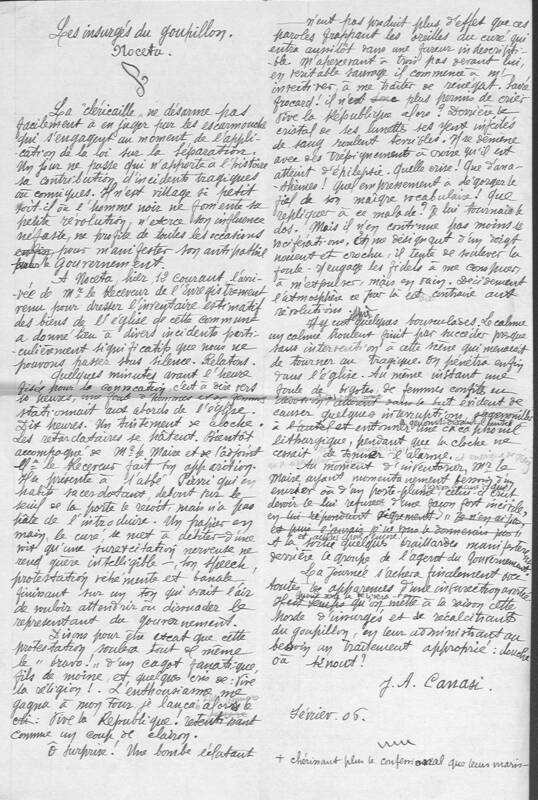 Les insurgés du goupillon.
Noceta.
La "cléricaille" ne désarme pas
facilement à en juger par les escarmouches
qui s'engagent au moment de l'appli-
cation de la loi sur la séparation.
Un jour ne passe qui n'apporte à l'histoire
sa contribution d'incidents tragiques
ou comiques. Il n'est village si petit
soit-il où l'homme noir ne fomente sa
petite révolution, n'exerce son influence
néfaste, ne profite de toutes les occasions
pour manifester son antipathie
le Gouvernement.
A Noceta hier courant, l'arri-
vée de Mr le Receveur de l'Enregistrement
venu pour dresser l'inventaire estimatif
des biens de l'église de cette commune
a donné lieu à divers incidents parti-
culièrement significatifs que nous ne
pouvons passer sous silence. Relatons.
Quelques minutes avant l'heure
fixée pour la convocation, c'est à dire vers
10 heures, une foule d'hommes et de femmes
stationnait aux abords de l'église.
Dix heures. Un tintement de cloche.
Les retardataires se hâtent. Bientôt,
accompagné de Mr le Maire et de l'adjoint
Mr le Receveur fait son apparition.
Il se présente à l'abbé Pierri qui en
habits sacerdotaux, debout sur le
seuil de la porte le reçoit, mais n'a pas
hâte de l'introduire. Un papier en
main, le curé, se met à débiter d'une
voix qu'une surexcitation nerveuse ne
rend guère intelligible – son speech,
protestation véhémente et banale
finissant sur un ton qui avait l'air
de vouloir attendrir ou dissuader le
représentant du Gouvernement.
Disons pour être exact que cette
protestation souleva tout de même
le "bravo" d'un cagot fanatique,
fils de moine, et quelques cris de: vive
la religion!. L'enthousiasme me
gagna à mon tour, je lançai alors le
cri: Vive la République. retentissant
comme un coup de clairon.
O surprise! Une bombe éclatant
n'eut pas produit plus d'effet que ces
paroles frappant les oreilles du curé qui
entra aussitôt dans une fureur indescripti-
ble. M'apercevant à trois pas devant lui,
en véritable sauvage il commence à m'
invectiver, à me traiter de renégat. Sacré
frocard! il n'est plus permis de crier
Vive la République alors? Derrière le
cristal de ses lunettes ses yeux injectés
de sang roulent terribles. Il se démène
avec des trépignements à croire qu'il est
atteint d'épilepsie. Quelle crise! Que d'ana-
thèmes! Quel empressement à dégorger le
fiel de son maigre vocabulaire! Que
répliquer à ce malade? Je lui tournai le
dos. Mais il n'en continue pas moins ses
vociférations. Et me désignant d'un doigt
noueux et crochu, il tente de soulever la
foule. Il engage les fidèles à me conspuer
à m'expulser, mais en vain. Décidément
l'atmosphère ce jour là est contraire aux
révolutions.
Il y eut quelques bousculades. Le calme
un calme houleux finit par succéder presque
sans intervention à cette scène qui menaçait
de tourner au tragique. On pénétra enfin
dans l'église. Au même instant une
foule de bigotes, de femmes confites
dans le but évident de
causer quelques interruptions, s'agenouiller
à l'autel et entonner une cacophonie
lithurgique, pendant que la cloche ne
cessait de sonner l'alarme.
Au moment d'inventorier, Mr le
Maire ayant momentanément besoin d'un
encrier ou d'un porte-plume, celui-ci crut
devoir le lui refuser d'une façon fort incivile,
en lui répondant
A la sortie quelques braillardes manifestèrent
derrière le groupe de l'agent du Gouvernement.
La journée s'acheva finalement avec
toutes les apparences d'une insurrection avortée.
Il est temps qu'on mette à la raison cette
horde d'insurgés et de récalcitrants
du goupillon, en leur administrant au
besoin un traitement approprié: douche
ou knout?
J. A. Canasi.
Février. 06.
+ chérissant plus le confessional que leurs maris-